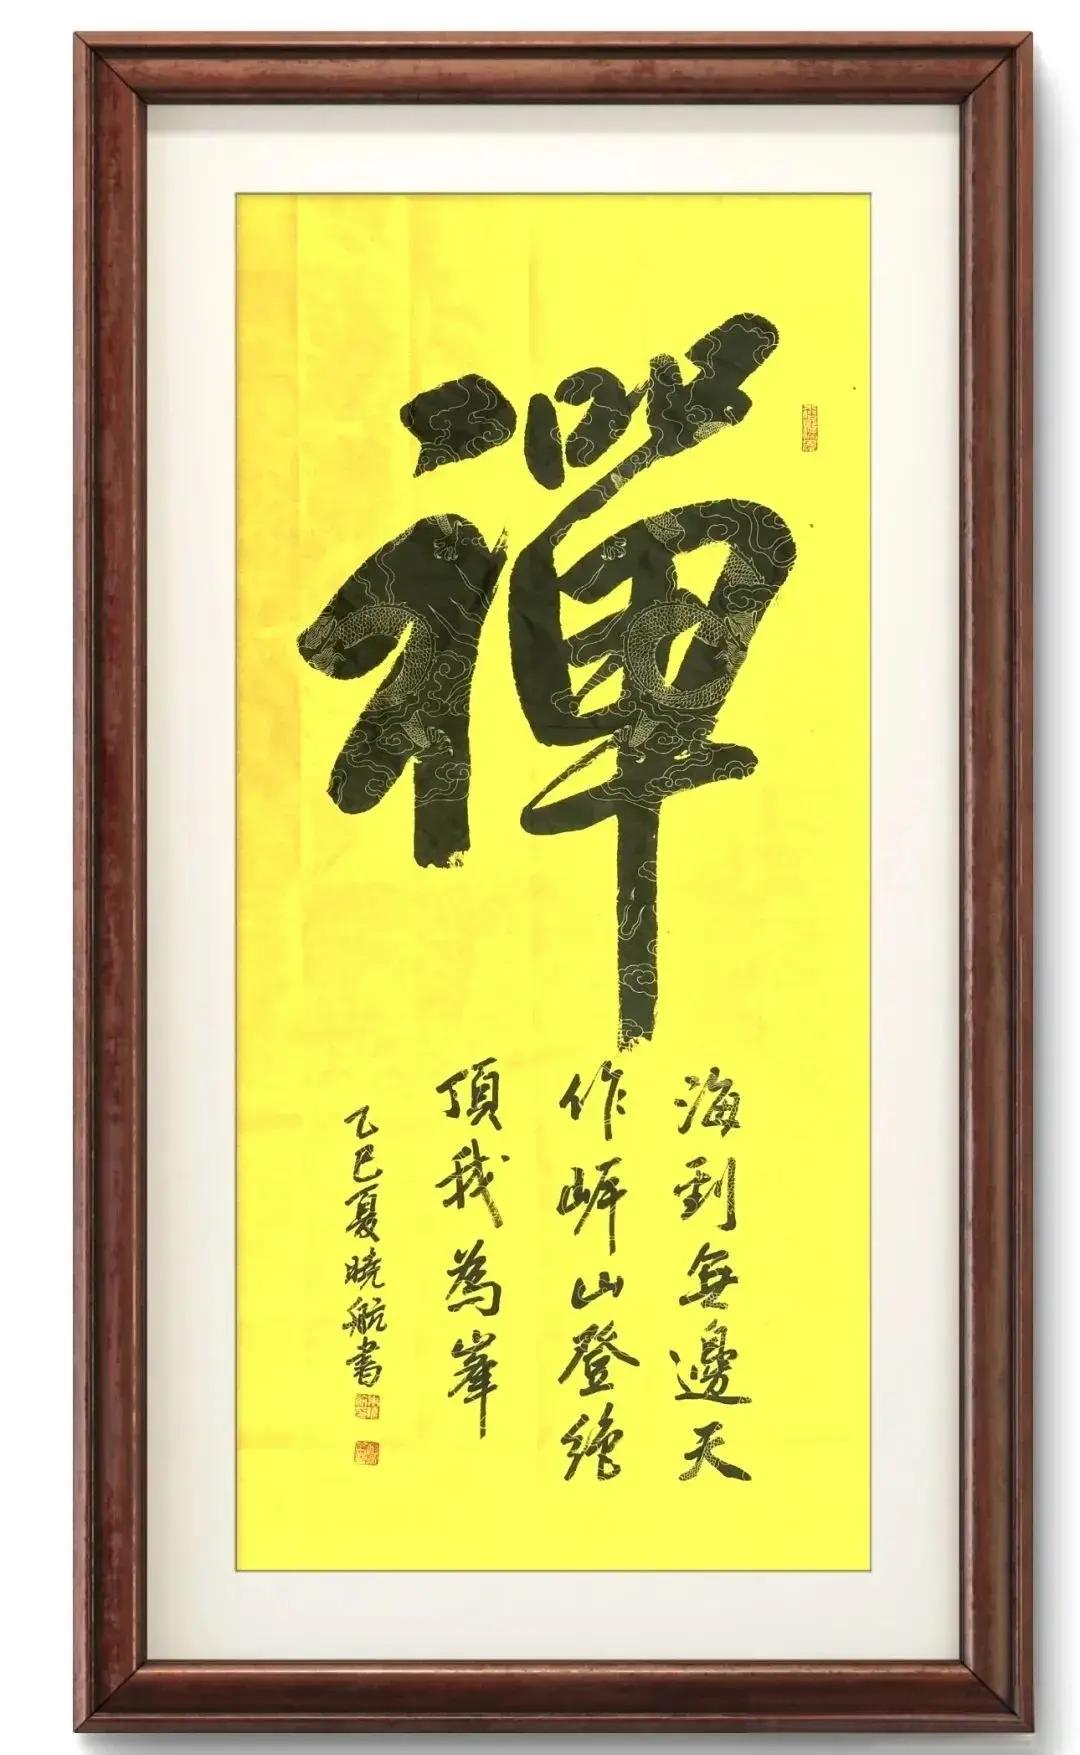 禪
海到無邊天
作岸山登絶
頂我為峯
乙巳夏曉航書